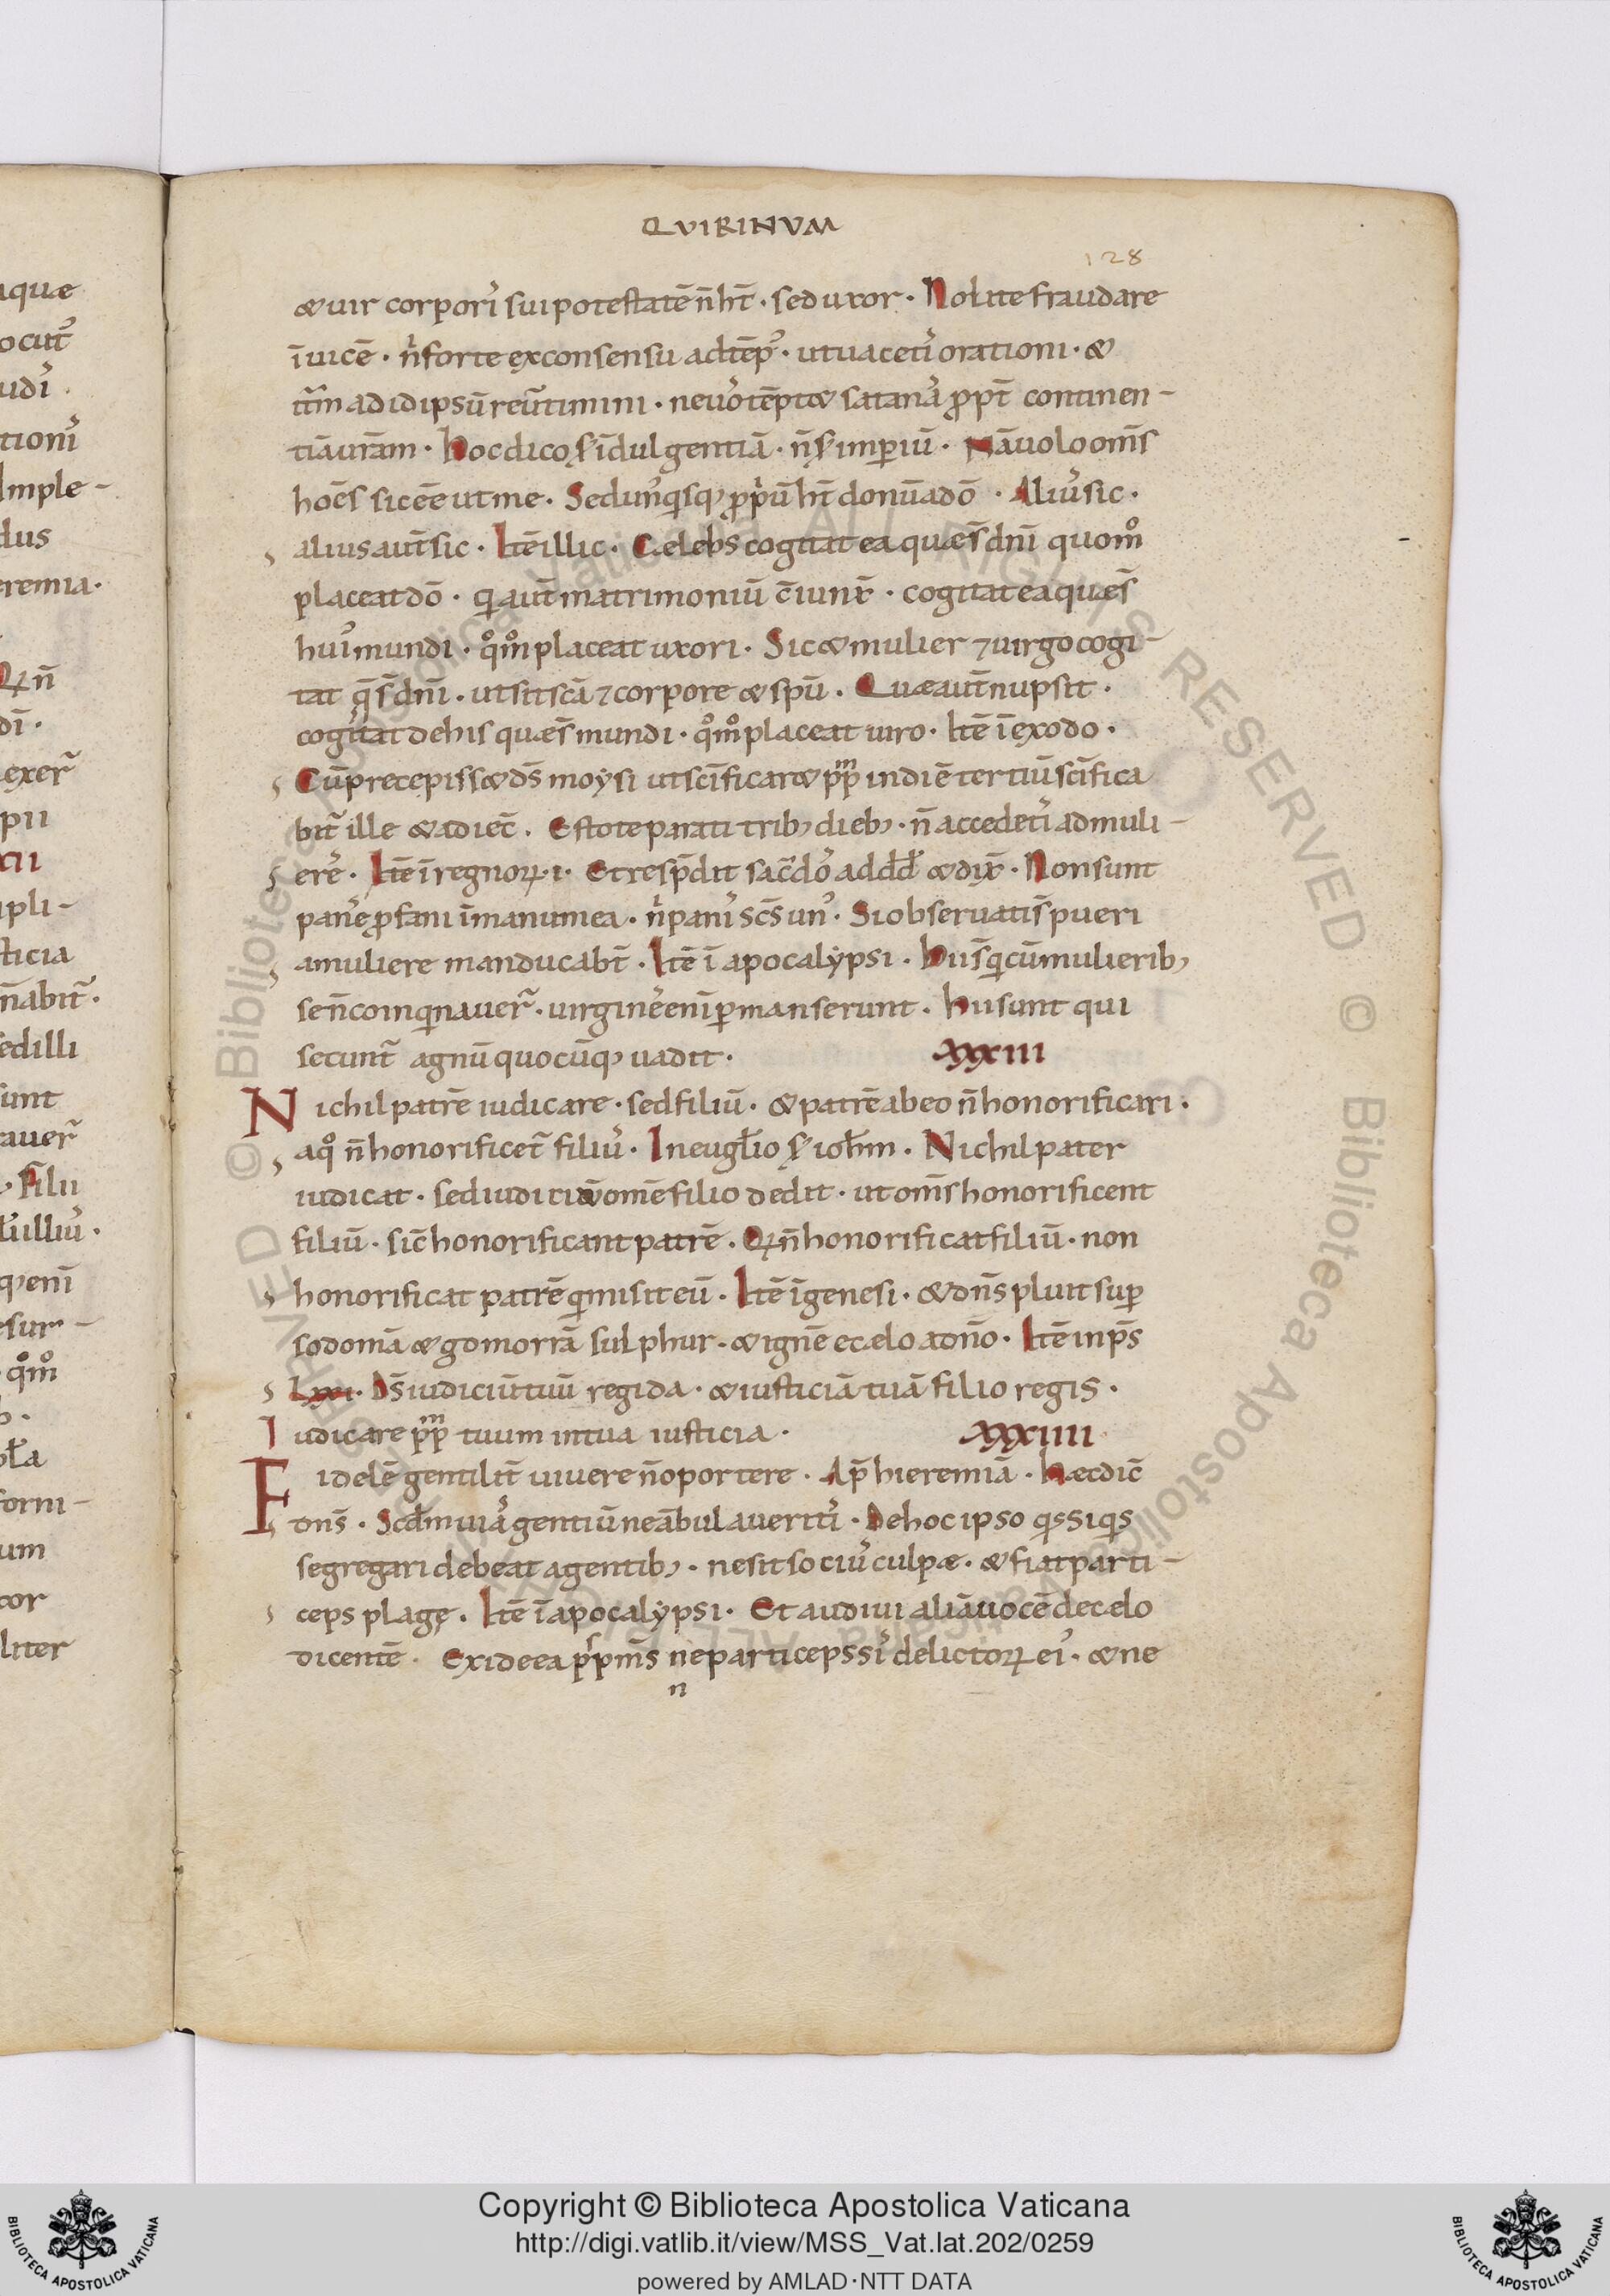 QVIRINVM
128
& uir corporis sui potestatē n̄ ht̄ · sed uxor · Nolite fraudare
īuicē · n̄ forte ex consensu ad tēp᾿ · ut uacetis orationi · &
itm̄ ad id ipsū reūtimini · ne uos tēptet satanas ꝓpt̄ continen-
tiā ur̄am · Hoc dico s; īdulgentiā · n̄ s; imꝑiū · Nā uolo om̄s
hoēs sic eē ut me · Sed un᾿q̄sq; ꝓpriū ht̄ donū a dō · Alius sic ·
alius aut̄ sic · Itē illic · Cælebs cogitat ea quæ s̄ dnī quom̊
placeat dō · qi aut̄ matrimoniū c̄iunx̄ · cogitat ea quæ s̄
hui᾿ mundi · q̊m̊ placeat uxori · Sic & mulier ⁊ uirgo cogi-
tat q̄ s̄ dnī · ut sit scā ⁊ corpore & spū · Quæ aut̄ nupsit ·
cogitat de his quæ s̄ mundi · q̊m̊ placeat uiro · Itē ī exodo ·
Cū precepiss& ds̄ moysi ut scīficar& pp̄m in diē tertiū scīfica
bit̄ ille & adiec̄ · Estote parati trib; dieb; · n̄ accedetis ad muli-
eres · Itē ī regnoꝝ · i · Et resp̄dit sac̄dos ad dd̄ & dix̄ · Non sunt
panes ꝓfani ī manu mea · n̄ panis scs̄ un᾿ · Si obseruati s̄ pueri
a muliere manducabt̄ · Itē ī apocalypsi · Hii s̄ qi cū mulierib;
se n̄ coinqinauer̄ · uirgines enī ꝑmanserunt · Hii sunt qui
secunt̄ agnū quocūq; uadit · XXXIII
Nichil patrē iudicare · sed filiū · & patrē ab eo n̄ honorificari ·
a q̊ n̄ honorificet̄ filius · In eugl̄io s; ioh̄m · Nichil pater
iudicat · sed iudiciū om̄e filio dedit · ut om̄s honorificent
filiū · sic̄ honorificant patrē · Qi n̄ honorificat filiū · non
honorificat patrē qi misit eū · Itē ī genesi · & dn̄s pluit suꝑ
sodomā & gomorrā sulphur · & ignē e cælo a dn̄o · Itē in ps̄
Lxxi · Ds̄ iudiciū tuū regi da · & iusticiā tuā filio regis ·
Iudicare pp̄m tuum in tua iusticia · XXXIIII
Fidelē gentilit̄ uiuere n̄ oportere · Ap̄ hieremiā · Hæc dic̄
dn̄s · Scdm̄ uias gentiū ne ābulaueritis · De hoc ipso qs̄ siqis
segregari debeat a gentib; · ne sit socius culpæ · & fiat parti-
ceps plagę · Itē ī apocalypsi · Et audiui aliā uocē de cælo
dicentē · Exi de ea pp̄s m̄s ne particeps sis delictoꝝ ei᾿ · & ne
n